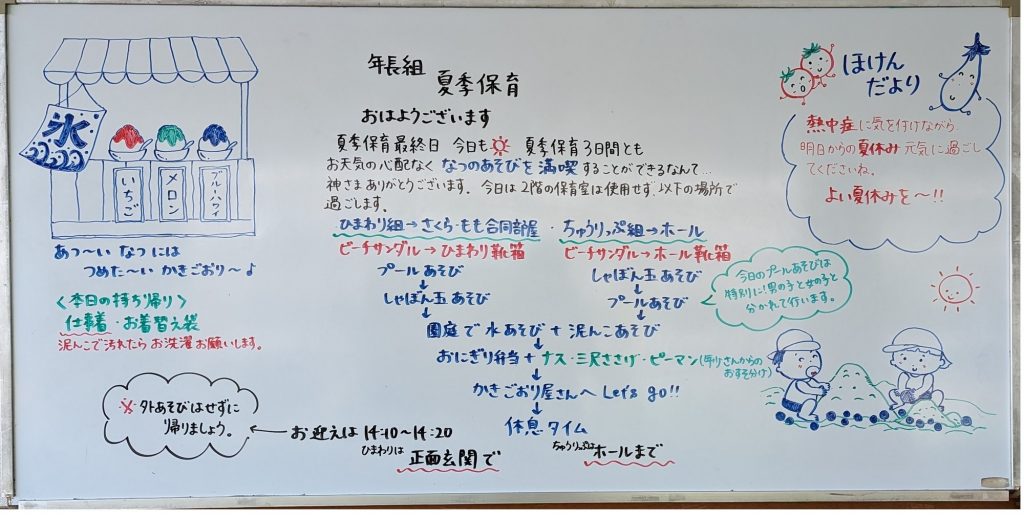 年長組
夏季保育
おはようございます
夏季保育最終日 今日も 夏季保育3日間とも
お天気の心配なく なつのあそびを満喫することができるなんて…
神さまありがとうございます。今日は2階の保育室は使用せず、以下の場所で
過ごします。
ひまわり組→さくら・もも合同部屋 ・ ちゅうりっぷ組→ホール
ビーチサンダル→ひまわり靴箱
ビーチサンダル→ホール靴箱
プールあそび
↓
しゃぼん玉あそび
しゃぼん玉あそび
↓
プールあそび
今日のプールあそびは
特別に!男の子と女の子と
分かれて行います。
↓
園庭で水あそび+泥んこあそび
↓
おにぎり弁当+ナス・三尺ささげ・ピーマン(
さんからの
おすそ分け)
↓
かきごおり屋さんへ Let's go!!
↓
休息タイム
お迎えは 14:10~14:20
ひまわりは 正面玄関で
ちゅうりっぷは ホールまで
※外あそびはせずに
帰りましょう。
氷
いちご
メロン
ブルーハワイ
あっ~い なつには
つめた~い かきごおり~♪
<本日の持ち帰り>
仕事着・お着替え袋
泥んこで汚れたらお洗濯お願いします。
ほけん
だより
熱中症に気を付けながら
明日からの夏休み 元気に過ごし
てくださいね。
よい夏休みを~!!